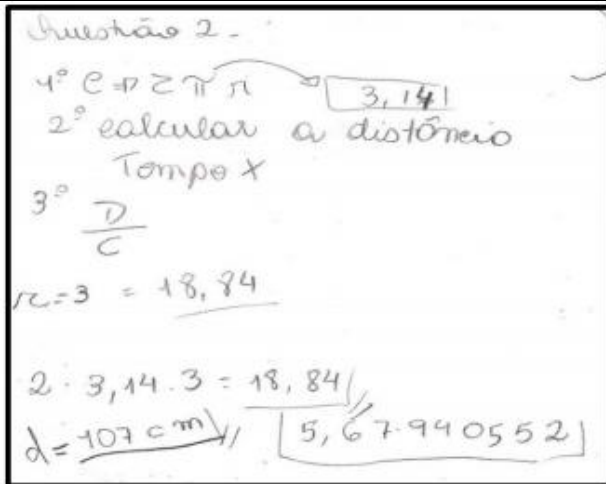 Questão 2.
1º C ⇒ 2 π r → 3,141
2º calcular a distância
Tempo x
3º D/C
r = 3 = 18,84
2 . 3,14 . 3 = 18,84 //
d = 107 cm // 5,67.940552